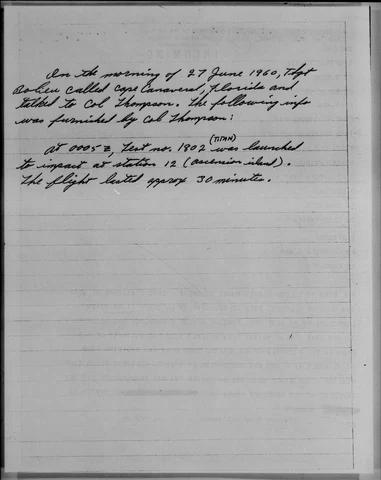 On the morning of 27 June 1960, T/Sgt
called Cape Canaveral, Florida and
talked to Col Thompson. The following info
was furnished by Col Thompson:
(TITAN)
At 0005Z, Test no. 1802 was launched
to impact at station 12 (Ascension Island).
The flight lasted approx 30 minutes.